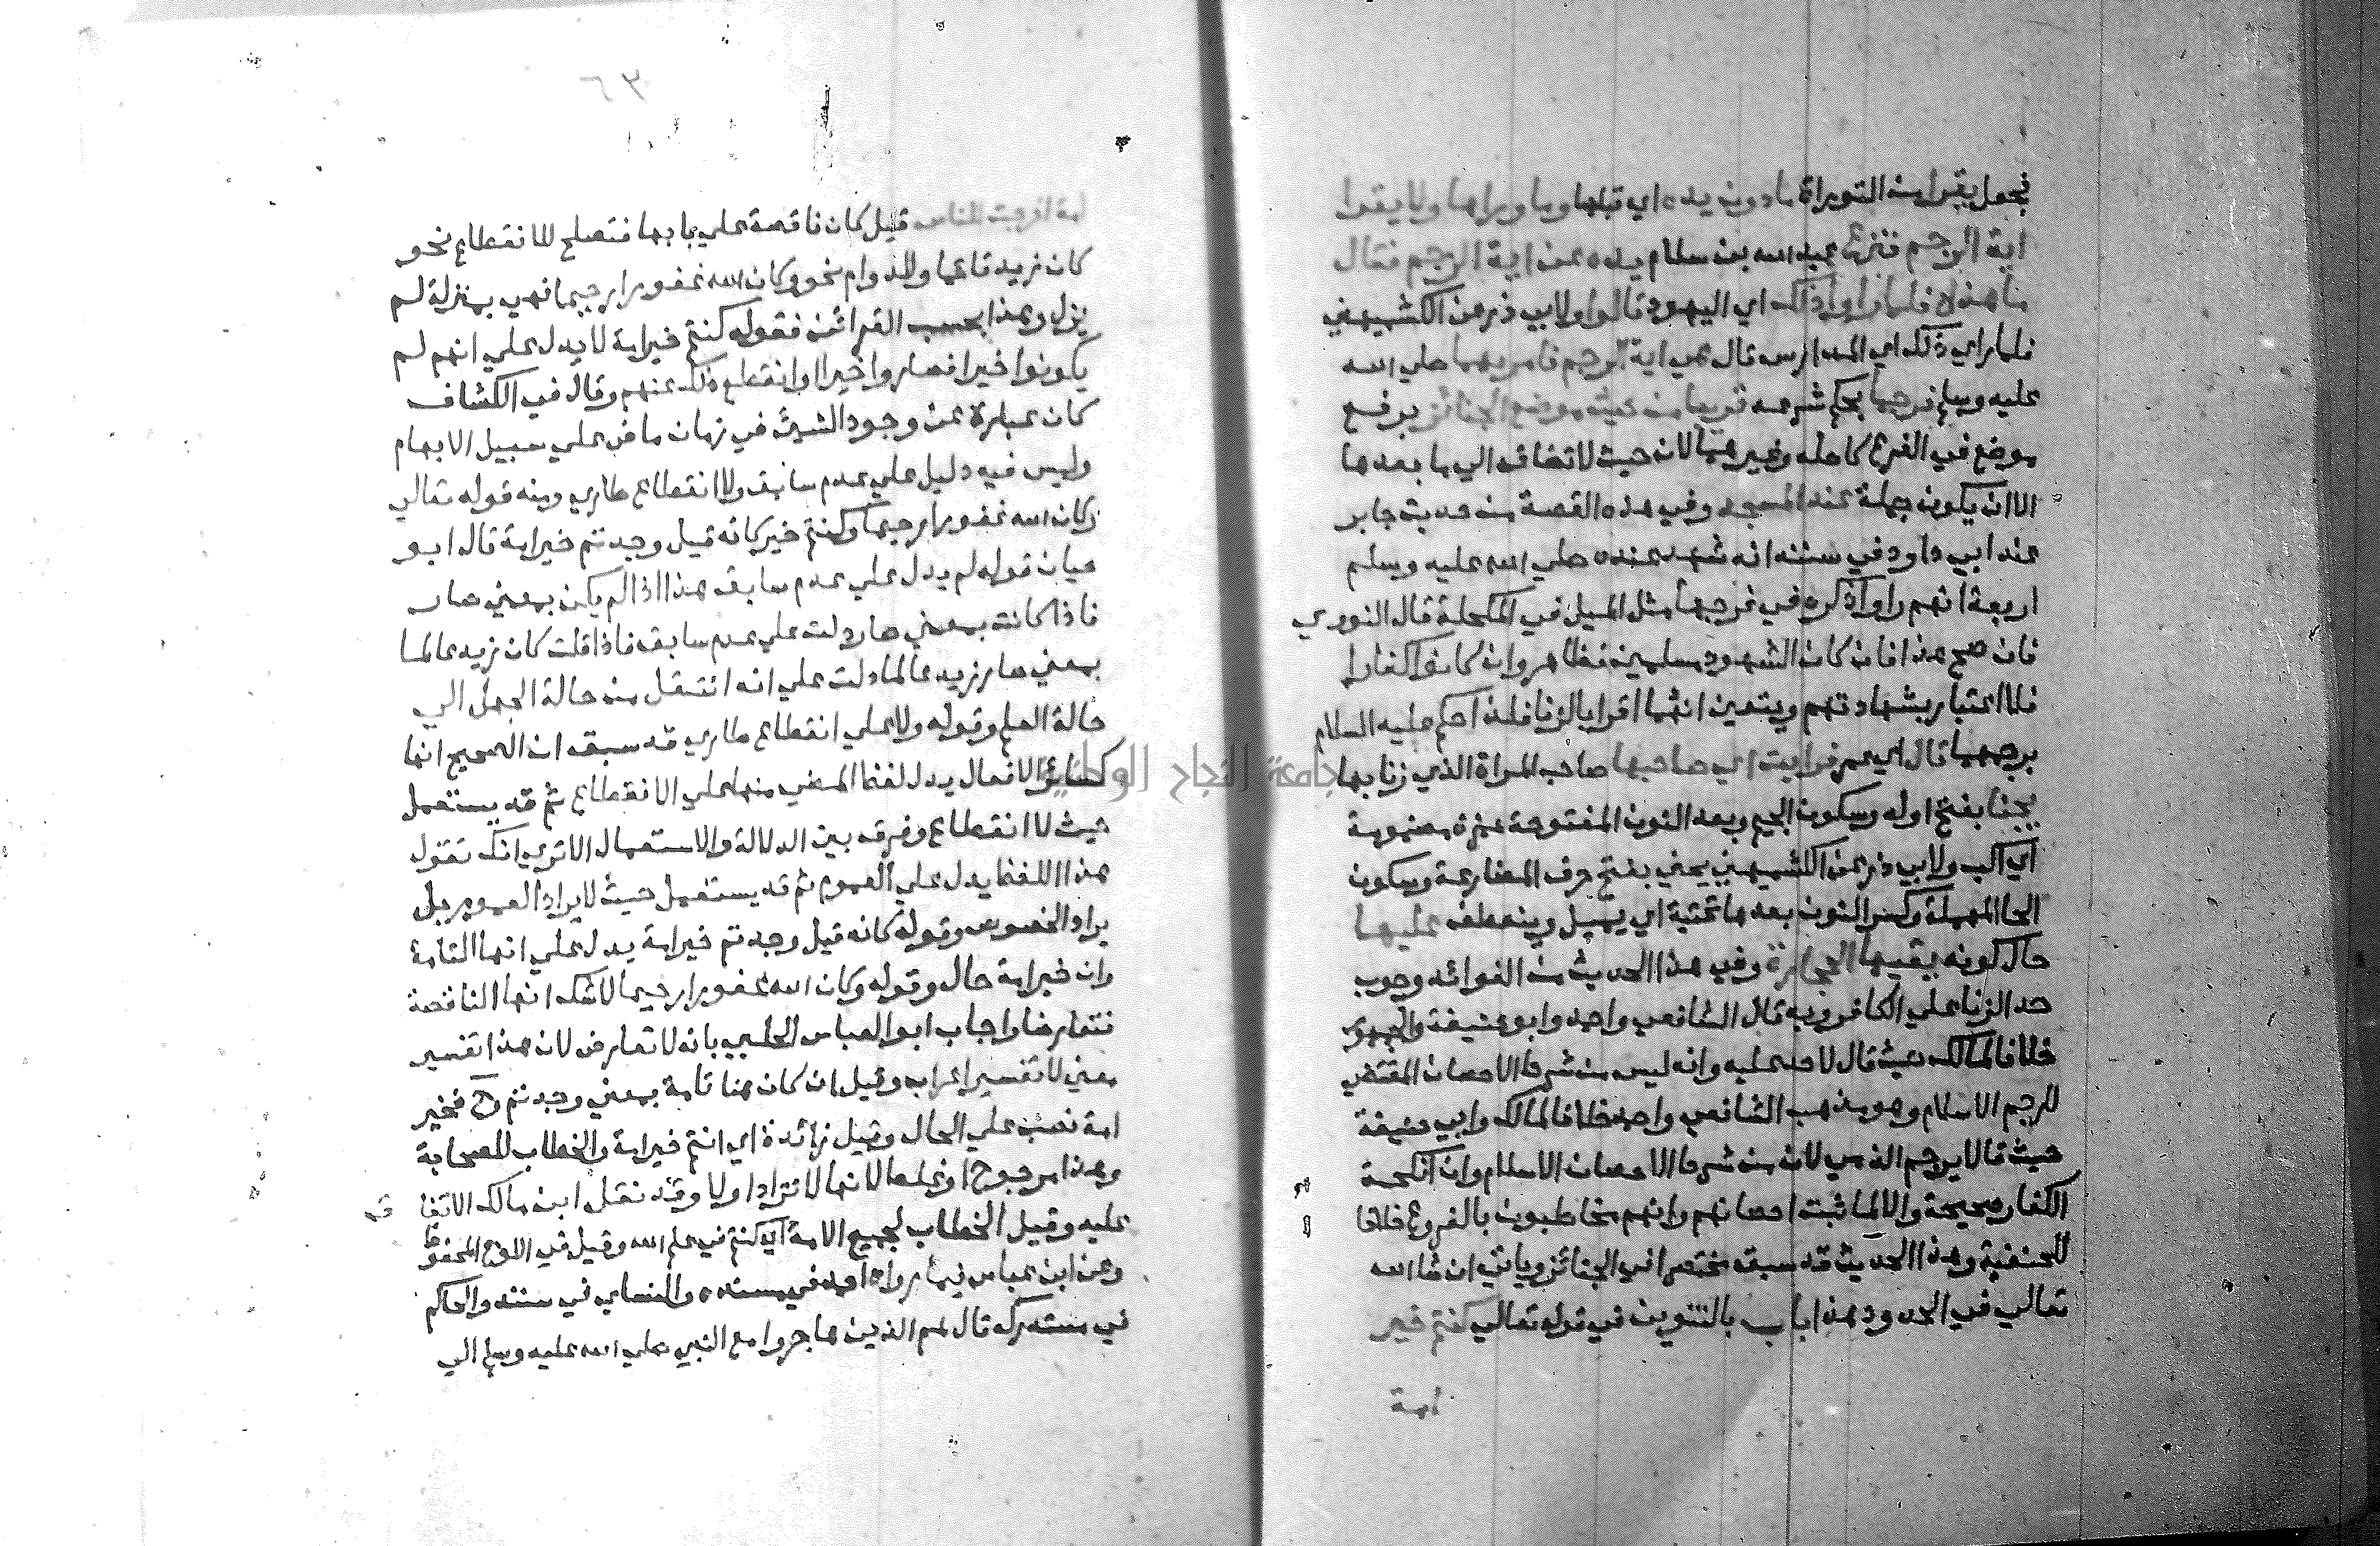 فجعل يقرا من التوراة مادون يده اي قبلها وما وراها ولا يقرا
اية الرجم فنزع عبد الله بن سلام يده عن اية الرجم فقال
ما هذه فلما راوا ذلك اي اليهود قالوا ولابي ذر عن الكشميهني
فلما راي ذلك اي المدارس قال هي اية الرجم فامر بهما صلي الله
عليه وسلم فرجما بحكم شرعه قريبا من حيث موضع الجنائز برفع
موضع في الفرع كاصله وغيرهما لان حيث لا تضاف الي ما بعدها
الا ان يكون جملة عند المسجد وفي هذه القصة من حديث جابر
عند ابي داود في سننه انه شهد عنده صلي الله عليه وسلم
اربعة انهم راوا ذكره في فرجها مثل الميل في المكحلة قال النووي
فان صح هذا فان كان الشهود مسلمين فظاهر وان كانوا كفارا
فلا اعتبار بشهادتهم ويتعين انهما اقرا بالزنا فلذا حكم عليه السلام
برجمهما قال اي عمر فرايت اي صاحبها صاحب المراة الذي زنا بها
يجنا بفتح اوله وسكون الجيم وبعد النون المفتوحة همزة مضمومة
اي اكب ولابي ذر عن الكشميهني يحني بفتح حرف المضارعة وسكون
الحا المهملة وكسر النون بعدها تحتية اي يميل وينعطف عليها
حال كونه يقيها الحجارة وفي هذا الحديث من الفوائد وجوب
حد الزنا علي الكافر وبه قال الشافعي واحمد وابو حنيفة والجمهور
خلافا لمالك حيث قال لا حد عليه وانه ليس من شرط الاحصان المقتضي
للرجم الاسلام وهو مذهب الشافعي واحمد خلافا لمالك وابي حنيفة
حيث قالا لا يرجم الذمي لان من شرط الاحصان الاسلام وان انكحة
الكفار صحيحة والا لما ثبت احصانهم وانهم مخاطبون بالفروع خلافا
للحنفية وهذا الحديث قد سبق مختصرا في الجنائز وياتي ان شا الله
تعالي في الحدود هذا باب بالتنوين في قوله تعالي كنتم خير
امة
٦٣
امة اخرجت للناس قيل كان ناقصة علي بابها فتصلح للانقطاع نحو
كان زيد قائما وللدوام نحو وكان الله غفورا رحيما فهي بمنزلة لم
يزل وهذا بحسب القرائن فقوله كنتم خير امة لا يدل علي انهم لم
يكونوا خيرا فصاروا خيرا او انقطع ذلك عنهم وقال في الكشاف
كان عبارة عن وجود الشيئ في زمان ماض علي سبيل الابهام
وليس فيه دليل علي عدم سابق ولا انقطاع طاري ومنه قوله تعالي
وكان الله غفورا رحيما وكنتم خير كانه قيل وجدتم خير امة قال ابو
حيان قوله لم يدل علي عدم سابق هذا اذا لم يكن بمعني صار
فاذا كانت بمعني صار دلت علي عدم سابق فاذا قلت كان زيد عالما
بمعني صار زيد عالما دلت علي انه انتقل من حالة الجهل الي
حالة العلم وقوله ولا علي انقطاع طاري قد سبق ان الصحيح انها
كسائر الافعال يدل لفظ المضي منها علي الانقطاع ثم قد يستعمل
حيث لا انقطاع وفرق بين الدلالة والاستعمال الا تري انك تقول
هذا اللفظ يدل علي العموم ثم قد يستعمل حيث لا يراد العموم بل
يراد الخصوص وقوله كانه قيل وجدتم خير امة يدل علي انها التامة
وان خير امة حال وقوله وكان الله غفورا رحيما لا شك انها الناقصة
فتعارضا واجاب ابو العباس الحلبي بانه لا تعارض لان هذا تفسير
معني لا تفسير اعراب وقيل ان كان هنا تامة بمعني وجدتم وح فخير
امة نصب علي الحال وقيل زائدة اي انتم خير امة والخطاب للصحابة
وهذا مرجوح او غلط لانها لا تزاد اولا وقد نقل ابن مالك الاتفا ق
عليه وقيل الخطاب لجميع الامة اي كنتم في علم الله وقيل في اللوح المحفوظ
وعن ابن عباس فيما رواه احمد في مسنده والنساي في سننه والحاكم
في مستدركه قال هم الذين هاجروا مع النبي صلي الله عليه وسلم الي
جامعة النجاح الوطنية